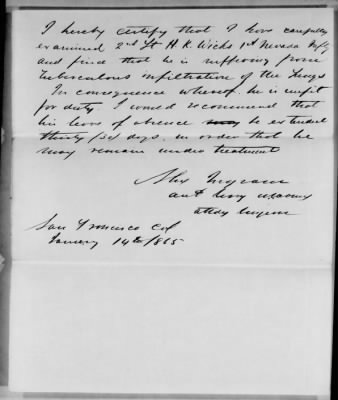 I hereby certify that I have carefully
examined 2nd Lt H. K. Wicks 1st Nevada Infty
and find that he is suffering from
Tuberculous infiltration of the Lungs
In consequence whereof he is unfit
for duty. I would recommend that
his leave of absence may be extended
thirty (30) days. in order that he
may remain under treatment
Alex
San Francisco Cal
January 14th 1865